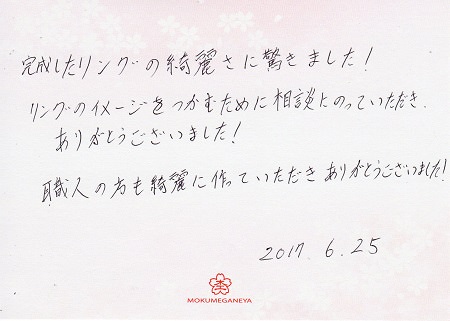 完成したリングの綺麗さに驚きました!
リングのイメージをつかむために相談にのっていただき、
ありがとうございました!
職人の方も綺麗に作っていただきありがとうございました!
2017. 6. 25
MOKUMEGANEYA